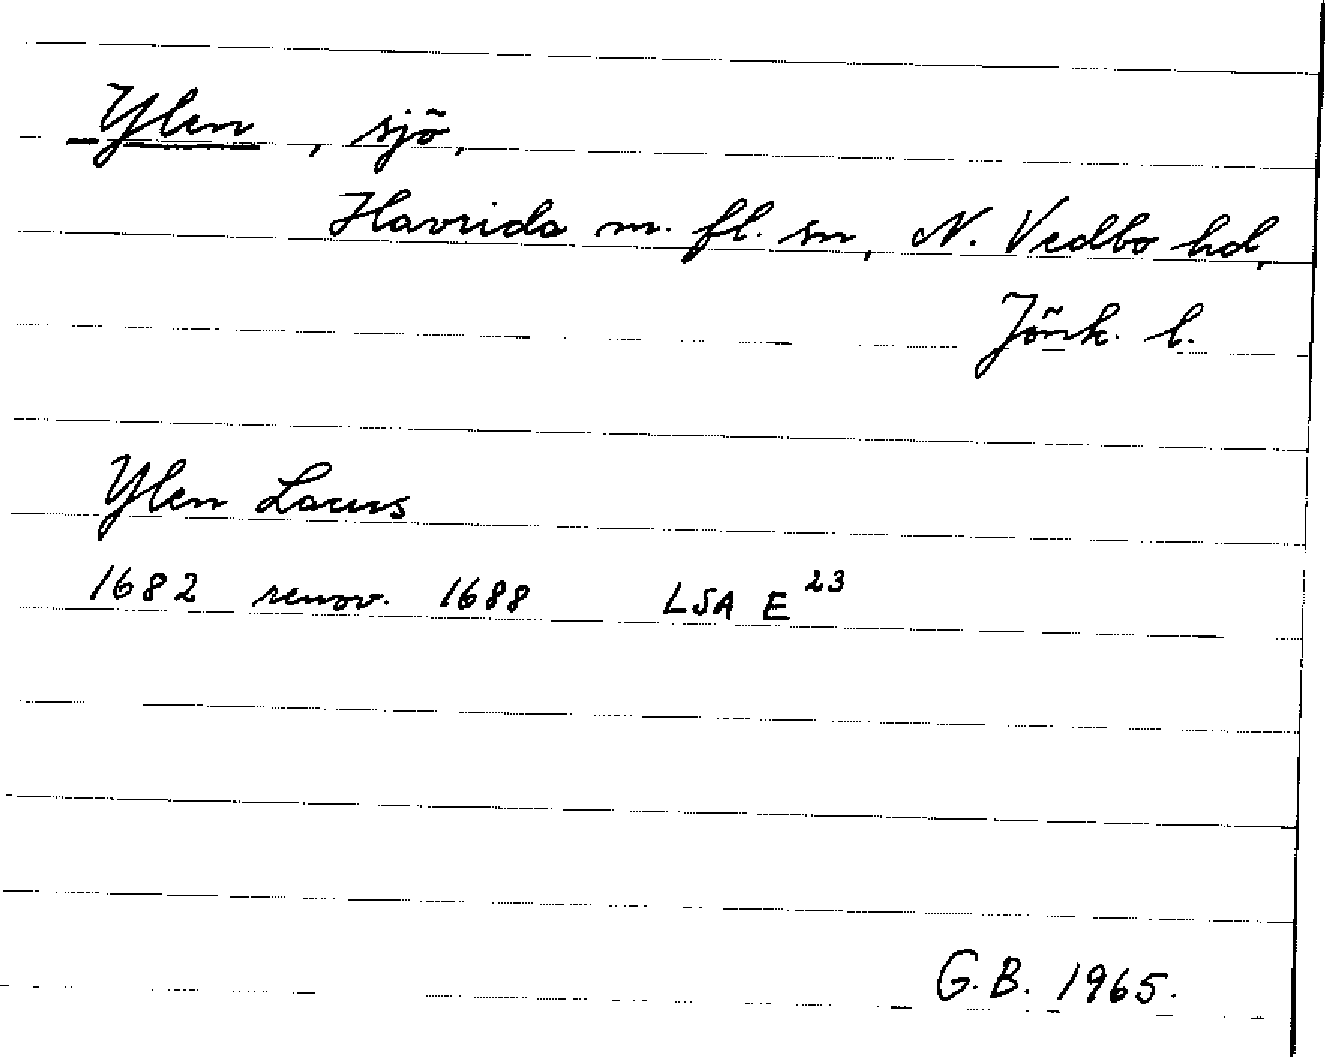 Ylen, sjö,
Haurida m. fl. sn, N. Vedbo hd,
Jönk. l.
Ylen Lacus
1682 renov. 1688 LSA E 23
G.B. 1965.